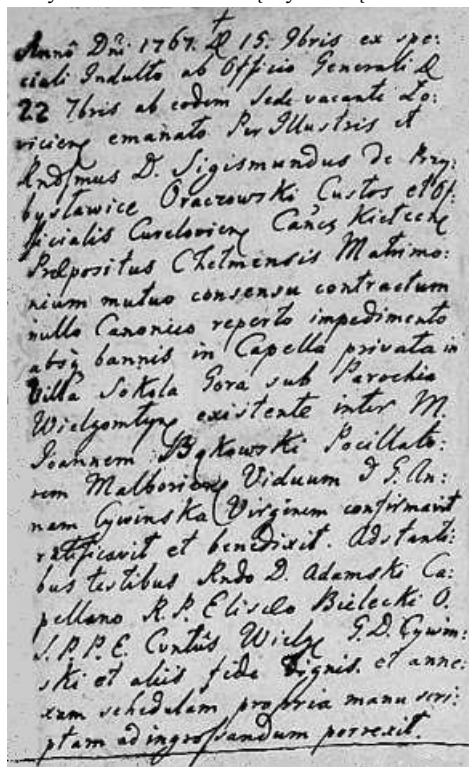 Anno Dni 1767. D 15. 9bris ex spe:
ciali Indulto ab Officio Generali D
22 7bris ab eodem Sede vacante Lo:
viciens emanato Per Illustris et
Rndssmus D. Sigismundus de Przy:
bysławice Oraczowski Custos et Of:
ficialis Curelovien Cancs Kielcen
Præpositus Chelmensis Matrimo:
nium mutuo consensu contractum
nullo Canonico reperto impedimento
absq bannis in Capella privata in
Villa Sokola Gora sub Parochia
Wielgomlyn existente inter M.
Joannem Bąkowski Pocillato:
rem Malborien Viduum & G. An:
nam Cywinska Virginem confirmavit
ratificavit et benedixit. Adstanti:
bus testibus Rndo D. Adamski Ca:
pellano R. P. Eliseo Bielecki O.
S. P. P. E. Cvntus Wielg G. D. Cywin:
ski et aliis fide dignis. et anne:
xam schedulam propria manu scri:
ptam ad ingrossandum porrexit.